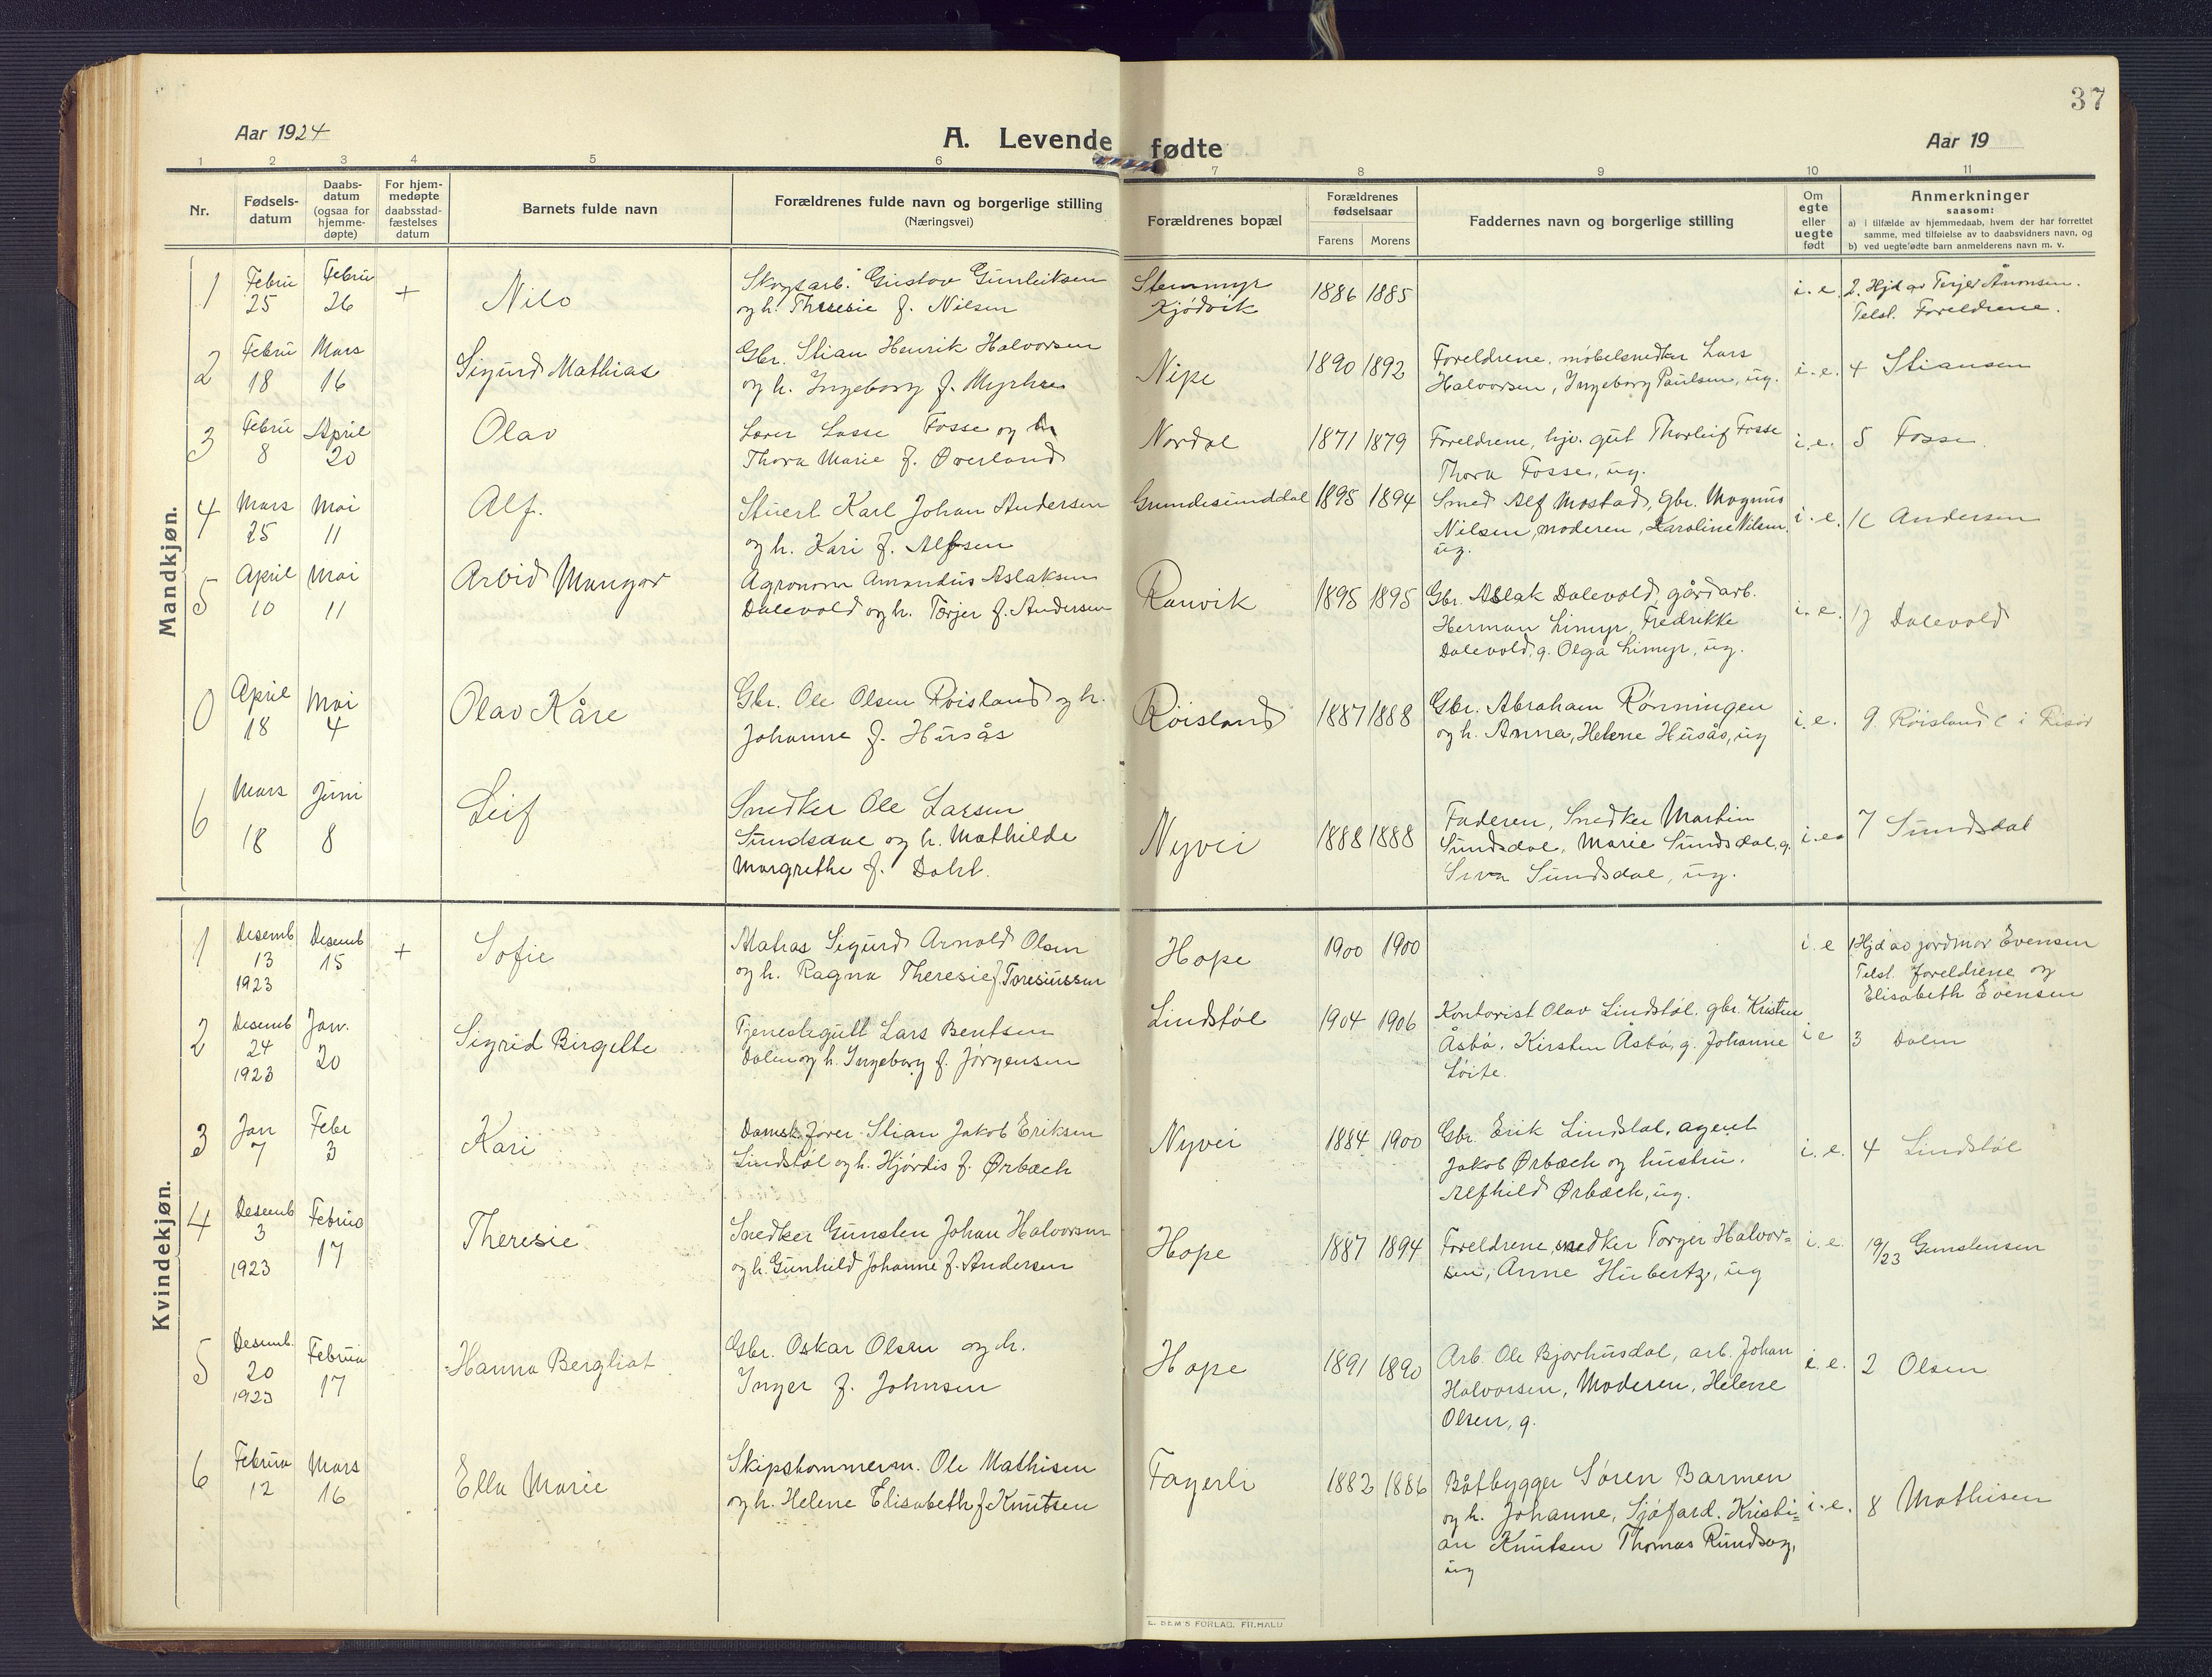 37
Aar 1924
A. Levende fødte
Aar 19
1 2 3 4 5 6 7 8 9 10 11
Nr.
Fødsels-
datum
Daabs-
datum
(ogsaa for
hjemme-
døpte)
For hjem-
medøpte
daabsstad-
fæstelses
datum
Barnets fulde navn
Forældrenes fulde navn og borgerlige stilling
(Næringsvei)
Forældrenes bopæl
Forældrenes
fødselsaar
Farens Morens
Faddernes navn og borgerlige stilling
Om
egte
eller
uegte
født
Anmerkninger
saasom:
a) i tilfælde av hjemmedaab, hvem der har forrettet
samme, med tilføielse av to daabsvidners navn, og
b) ved uegte fødte barn anmelderens navn m. v.
Mandkjøn.
1 Febru 25 Febru 26 + Nils
Skogsarb. Gustav Gunleiksen
og h. Theresie f. Nilsen
Stemmyr
Kjødvik
1886 1885
i. e. 2. Hjd av Terjer Åmonsen.
Telst. Foreldrene.
2 Febru 18 Mars 16 Sigurd Mathias
Gbr. Stian Henrik Halvorsen
og h. Ingeborg f. Myhre
Nipe 1890 1892
Foreldrene, møbelsnedker Lars
Halvorsen, Ingeborg Paulsen, ug.
i. e. 4 Stiansen
3 Febru 8 April 20 Olav
Lærer Lasse Fosse og h
Thora Marie f. Øverland
Nordal 1871 1879
Foreldrene, hjv. gut Thorleif Fosse
Thora Fosse, ug.
i. e. 5 Fosse.
4 Mars 25 Mai 11 Alf.
Stuert Karl Johan Andersen
og h. Kari f. Alfsen
Grundesunddal 1895 1894
Smed Alf Mostad, gbr. Magnus
Nilsen, moderen, Karoline Nilsen,
ug.
i. e. Andersen
5 April 10 Mai 11 Arvid Mangor
Agronom Amandus Aslaksen
Dalevold og h. Terjer f. Andersen
Ranvik 1895 1895
Gbr. Aslak Dalevold, gårdarb.
Herman Limyr, Fredrikke
Dalevold, g. Olga Limyr, ug.
i. e. 17 Dalevold
0 April 18 Mai 4 Olav Kåre
Gbr. Ole Olsen Røisland og h.
Johanne f. Husås
Røisland 1887 1888
Gbr. Abraham Rønningen
og h. Anna, Helene Husås, ug
i. e. 9 Røisland i Risør
6 Mars 18 Juni 8 Leif
Snedker Ole Larsen
Sundsdal og h. Mathilde
Margrethe f. Dahl.
Nyvei 1888 1888
Faderen, Snedker Martin
Sundsdal, Marie Sundsdal, g.
Sundsdal, ug.
i. e. 7 Sundsdal
Kvindekjøn.
1 Desemb 13 1923 Desemb 15 + Sofie
Matros Sigurd Arnold Olsen
og h. Ragna Theresie f. Toresiussen
Hope 1900 1900
i. e 1 Hjd av jordmor Evensen
Telst. foreldrene og
Elisabeth Evensen
2 Desemb 24 1923 Jan. 20 Sigrid Birgitte
Tjenestegutt Lars Bentsen
Dalen og h. Ingeborg f. Jørgensen
Lindstøl 1904 1906
Kontorist Olav Lindstøl, gbr. Kristen
Åsbø, Kirsten Åsbø, g. Johanne
Løite.
i e 3 Dalen
3 Jan 7 Febr 3 Kari
Damsk.fører Stian Jakob Eriksen
Lindstøl og h. Hjørdis f. Ørbæch
Nyvei 1884 1900
Gbr. Erik Lindstøl, agent
Jakob Ørbæch og hustru.
Alfhild Ørbæch, ug.
i. e. 4 Lindstøl
4 Desemb 3 1923 Februa 17 Theresie
Snedker Gunsten Johan Halvorsen
og h. Gunhild Johanne f. Andersen
Hope 1887 1894
Foreldrene, snedker Torger Halvor=
sen, Anne Hubertz, ug
i. e. 19/23 Gunstensen
5 Desemb. 20 1923 Februa 17 Hanna Bergliot
Gbr. Oskar Olsen og h.
Inger f. Johnsen
Hope 1891 1890
Arb. Ole Bjorhusdal, arb. Johan
Halvorsen, Moderen, Helene
Olsen, g.
i. e. 2 Olsen
6 Februa 12 Mars 16 Ella Marie
Skipstømmerm. Ole Mathisen
og h. Helene Elisabeth f. Knutsen
Fagerli 1882 1886
Båtbygger Søren Barmen
og h. Johanne, Sjøfard. Kristi=
an Knutsen Thomas Rundsag,
ug
i. e. 8 Mathisen
E. SEM'S FORLAG, FR.HALD